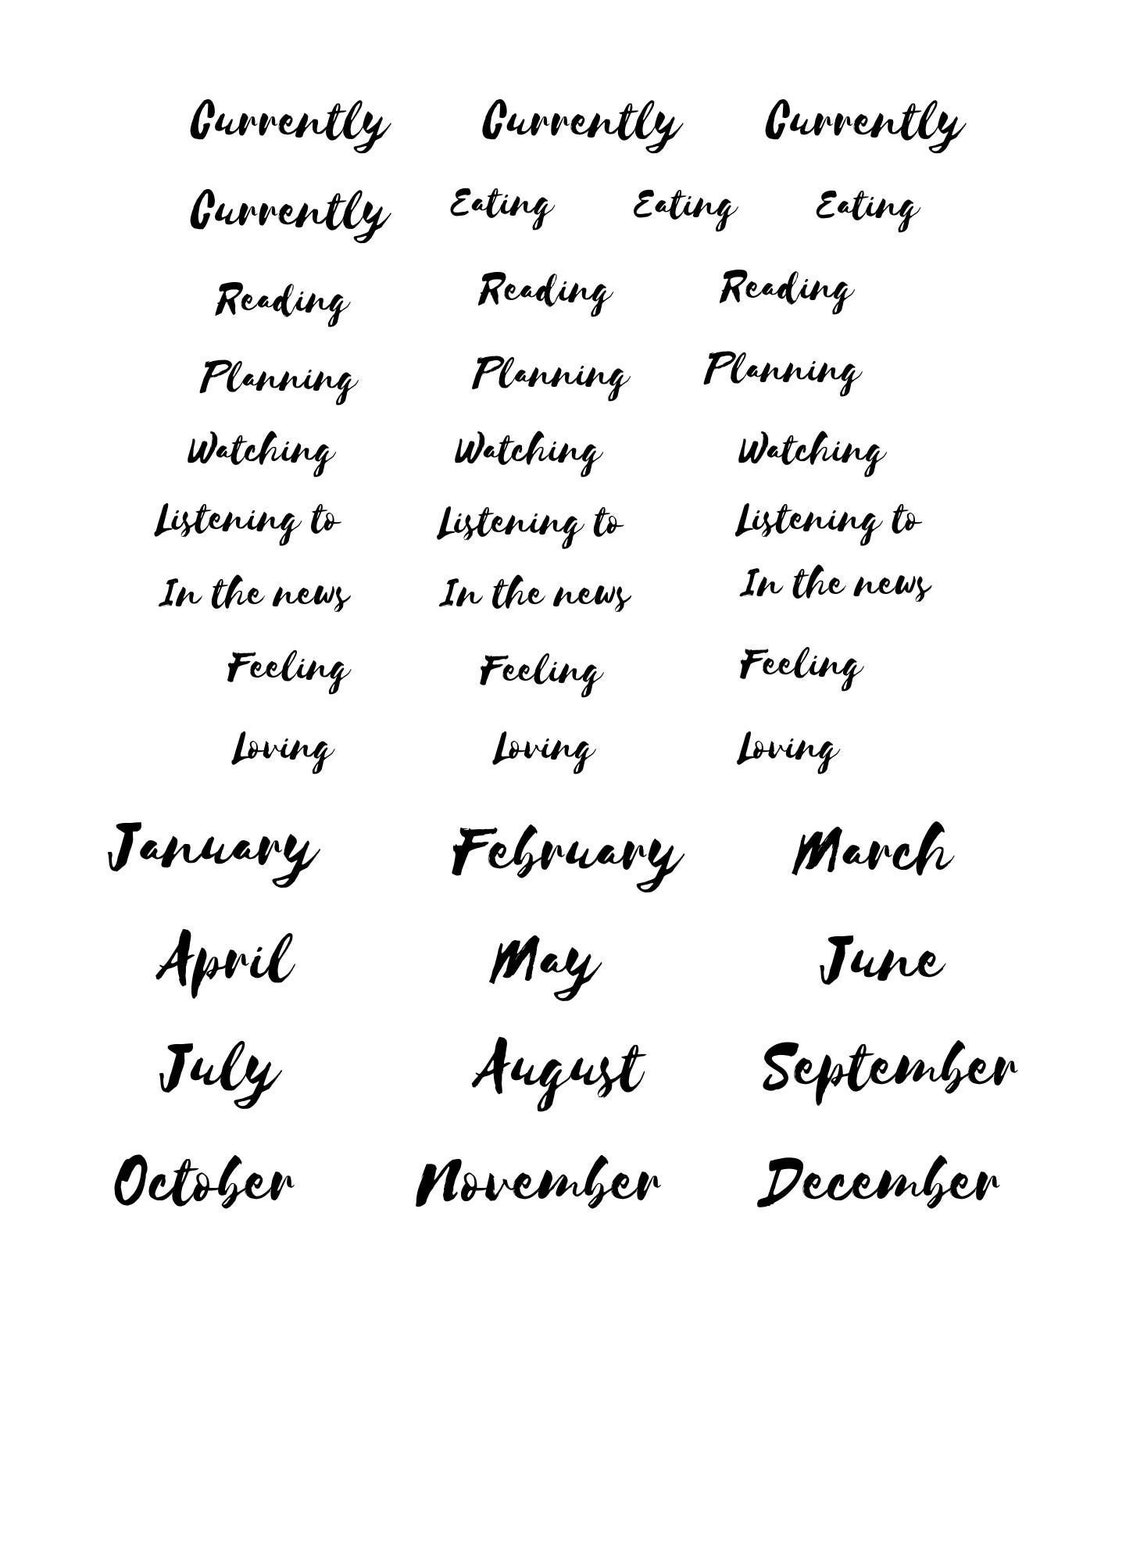 Currently Currently Currently
Currently Eating Eating Eating
Reading Reading Reading
Planning Planning Planning
Watching Watching Watching
Listening to Listening to Listening to
In the news In the news In the news
Feeling Feeling Feeling
Loving Loving Loving
January February March
April May June
July August September
October November December